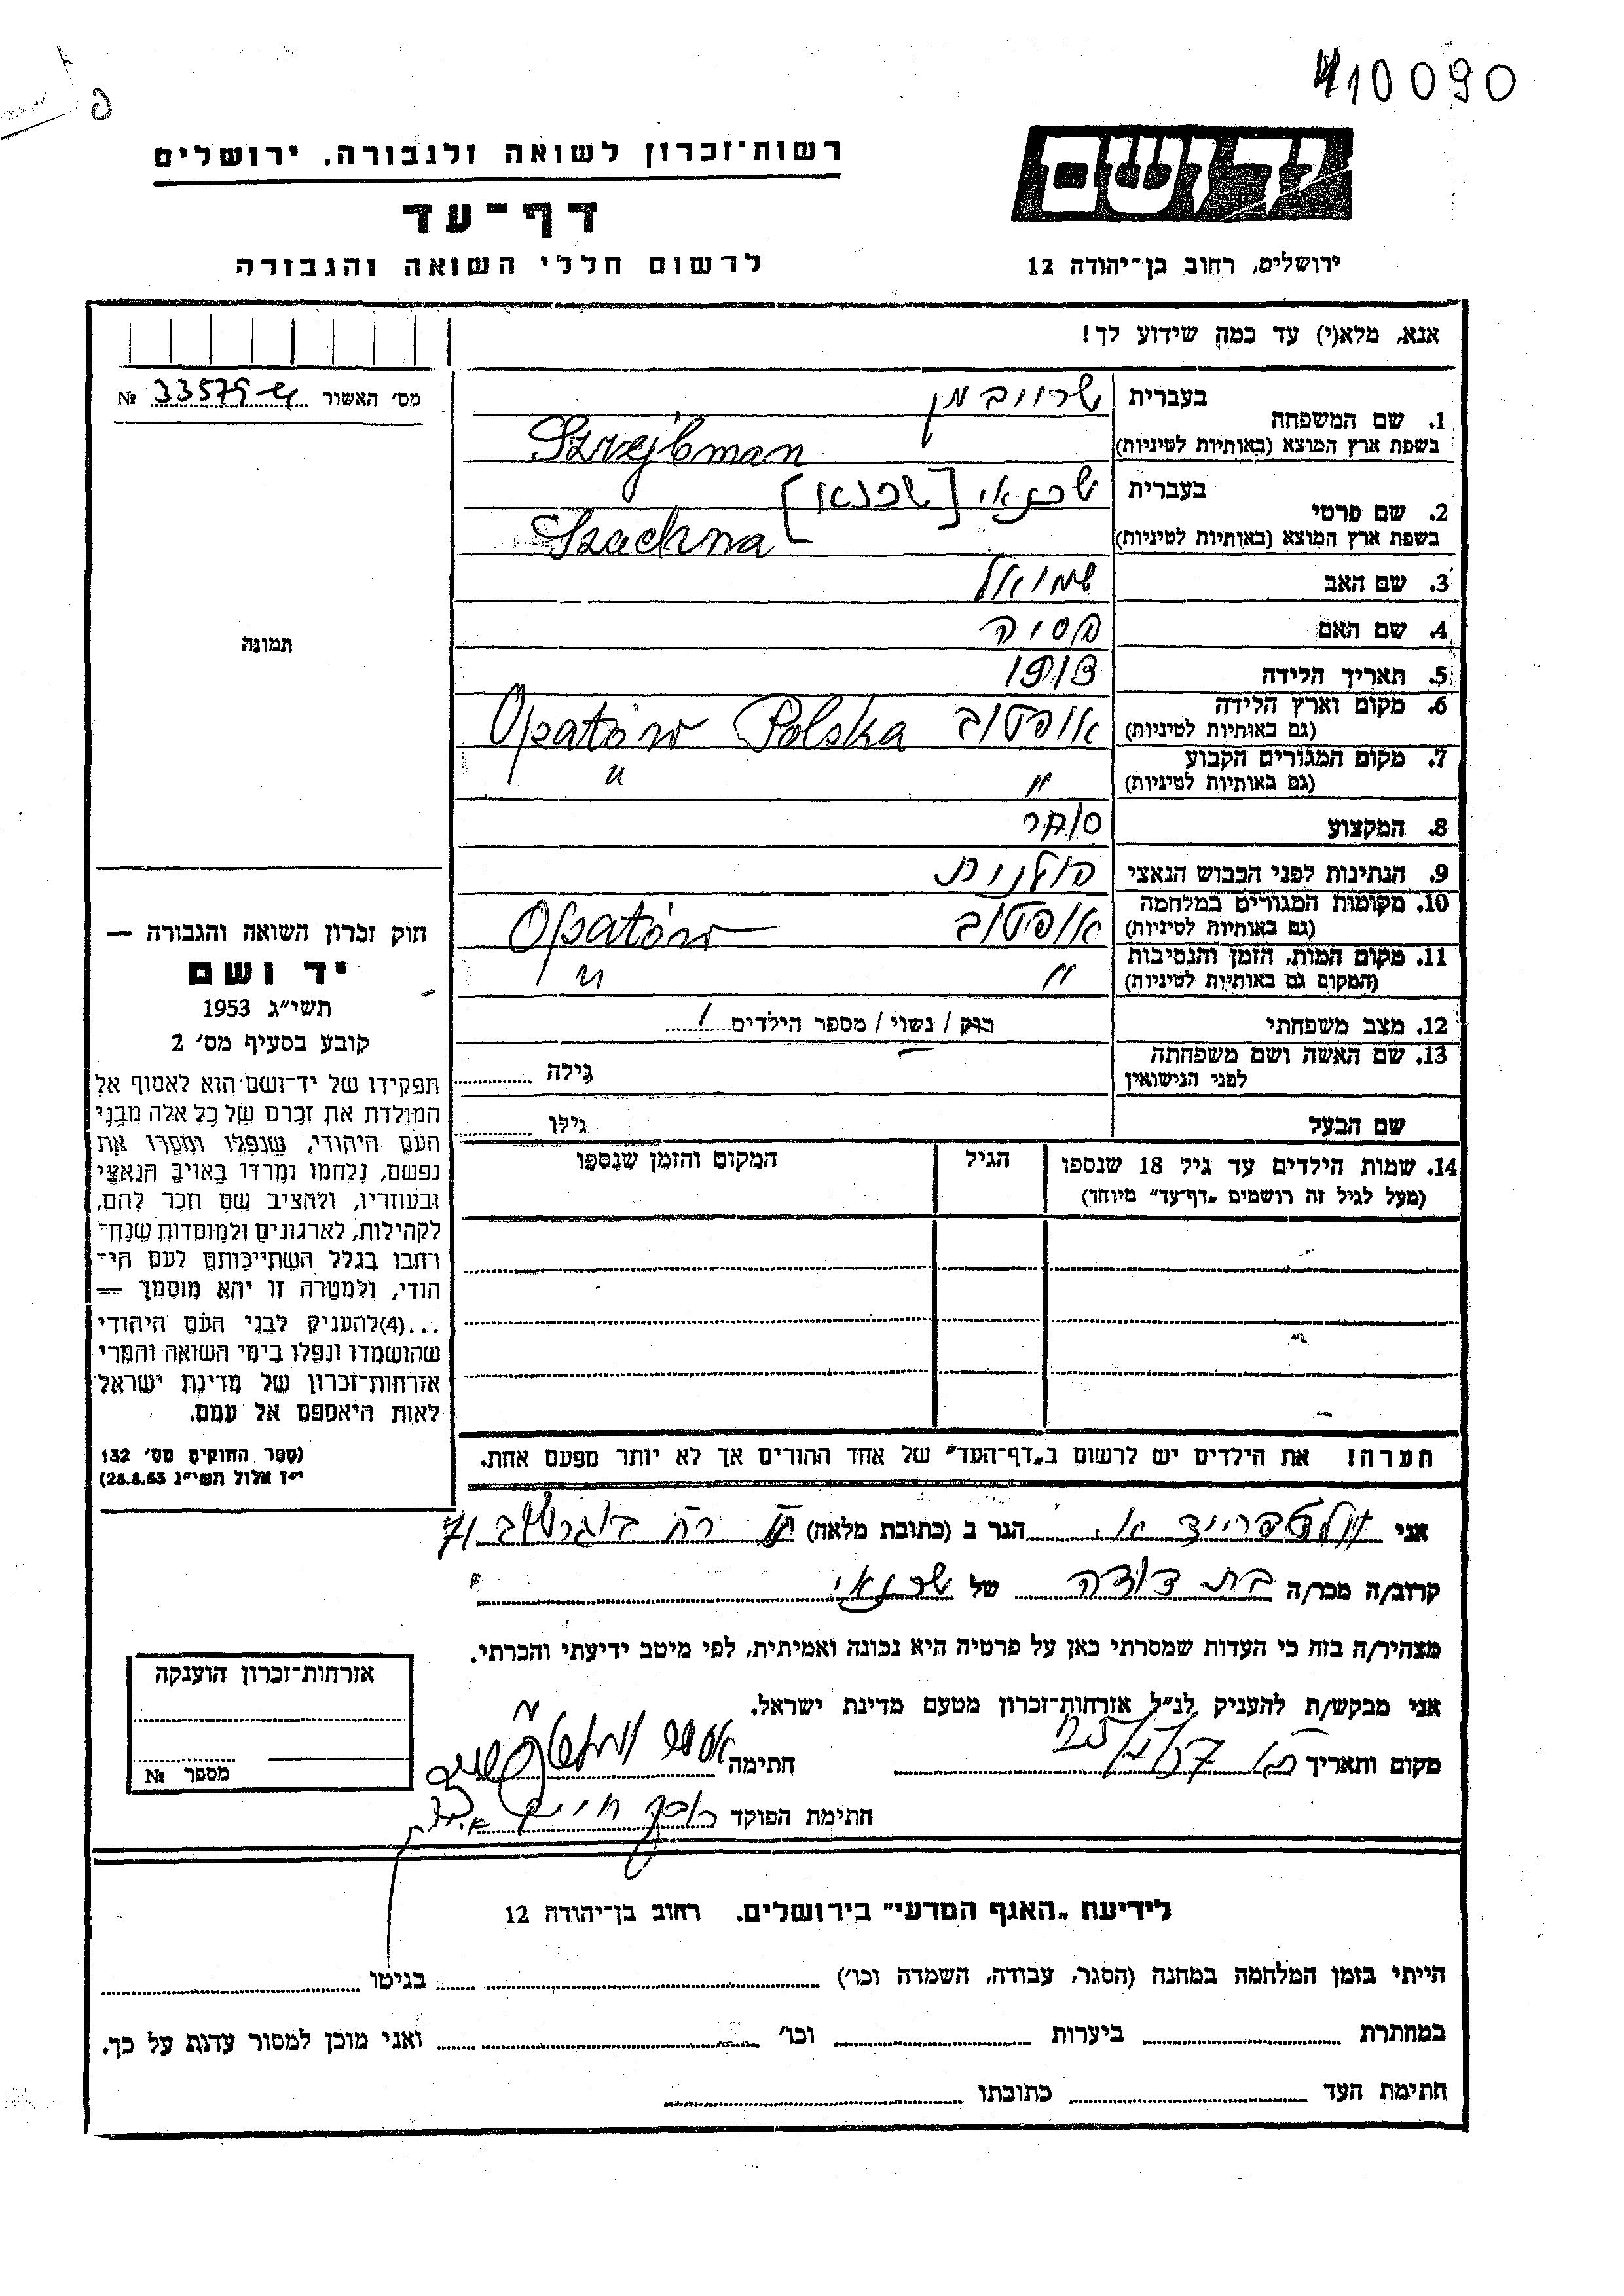 410090
רשות־זכרון לשואה ולגבורה. ירושלים
דף־עד
לרשום חללי השואה והגבורה
יד ושם
ירושלים, רחוב בן־יהודה 12
אנא, מלא(י) עד כמה שידוע לך!
מס׳ האשור № 33579
תמונה
1. שם המשפחה בעברית
בשפת ארץ המוצא (באותיות לטיניות) Szrejbman
2. שם פרטי בעברית שכנאי [שכנא]
בשפת ארץ המוצא (באותיות לטיניות) Szachna
3. שם האב שמואל
4. שם האם
5. תאריך הלידה
6. מקום וארץ הלידה אופטוב Opatów Polska
(גם באותיות לטיניות)
7. מקום המגורים הקבוע " "
(גם באותיות לטיניות)
8. המקצוע סוחר
9. הנתינות לפני הכבוש הנאצי פולנית
10. מקומות המגורים במלחמה אופטוב Opatów
(גם באותיות לטיניות)
11. מקום המות, הזמן והנסיבות " "
(המקום גם באותיות לטיניות)
12. מצב משפחתי רוק / נשוי / מספר הילדים 1
13. שם האשה ושם משפחתה גילה
לפני הנישואין
שם הבעל גילו
14. שמות הילדים עד גיל 18 שנספו הגיל המקום והזמן שנספו
(מעל לגיל זה רושמים „דף־עד״ מיוחד)
הערה! את הילדים יש לרשום ב„דף־העד״ של אחד ההורים אך לא יותר מפעם אחת.
חוק זכרון השואה והגבורה —
יד ושם
תשי״ג 1953
קובע בסעיף מס׳ 2
תפקידו של יד־ושם הוא לאסוף אל
המולדת את זכרם של כל אלה מבני
העם היהודי, שנפלו ומסרו את
נפשם, נלחמו ומרדו באויב הנאצי
ובעוזריו, ולהציב שם וזכר להם,
לקהילות, לארגונים ולמוסדות שנח־
רחבו בגלל השתייכותם לעם הי־
הודי, ולמטרה זו יהא מוסמך —
...(4)להעניק לבני העם היהודי
שהושמדו ונפלו בימי השואה והמרי
אזרחות־זכרון של מדינת ישראל
לאות היאספם אל עמם.
(ספר החוקים מס׳ 132
י״ז אלול תשי״ג 28.8.53)
אני הגר ב (כתובת מלאה)
קרוב/ה מכר/ה בת דודה של שכנאי
מצהיר/ה בזה כי העדות שמסרתי כאן על פרטיה היא נכונה ואמיתית, לפי מיטב ידיעתי והכרתי.
אני מבקש/ת להעניק לנ״ל אזרחות־זכרון מטעם מדינת ישראל.
מקום ותאריך חתימה
חתימת הפוקד
אזרחות־זכרון הוענקה
מספר №
לידיעת „האגף המדעי״ בירושלים. רחוב בן־יהודה 12
הייתי בזמן המלחמה במחנה (הסגר, עבודה, השמדה וכו׳) בגיטו
במחתרת ביערות וכו׳ ואני מוכן למסור עדות על כך.
חתימת העד כתובתו